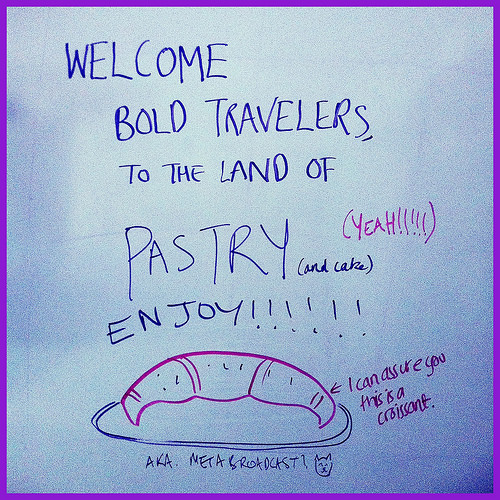 WELCOME
BOLD TRAVELERS,
TO THE LAND OF
(YEAH!!!!!)
PASTRY (and cake)
ENJOY!!!!!!!
← I can assure you
this is a
croissant.
AKA. METABROADCAST!